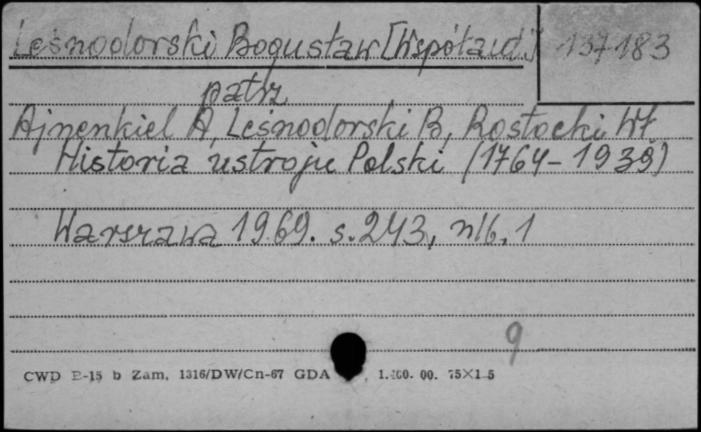 Leśnodorski Bogusław [Współaut.] 137183
patrz
Ajnenkiel A, Leśnodorski B, Rostocki Wł.
Historia ustroju Polski (1764-1939)
Warszawa 1969. s. 243, nlb. 1
9
CWD E-15 b Zam. 1316/DW/Cn-67 GDA 1.400. 00. 75×1 5